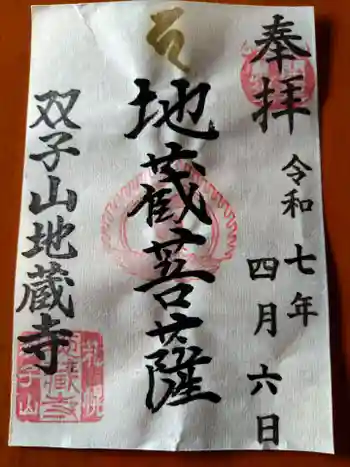 奉拝
令和七年
四月六日
地蔵菩薩
双子山地蔵寺